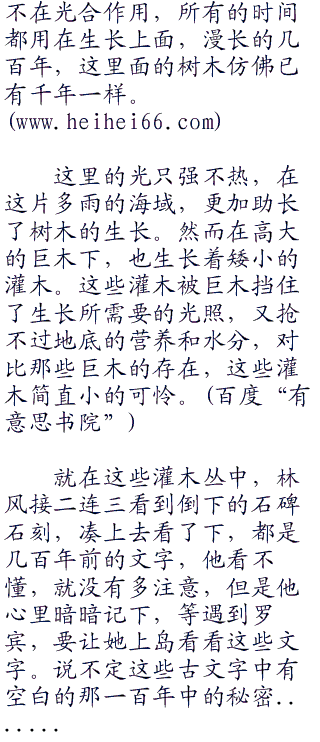 不在光合作用，所有的时间
都用在生长上面，漫长的几
百年，这里面的树木仿佛已
有千年一样。
(www.heihei66.com)
这里的光只强不热，在
这片多雨的海域，更加助长
了树木的生长。然而在高大
的巨木下，也生长着矮小的
灌木。这些灌木被巨木挡住
了生长所需要的光照，又抢
不过地底的营养和水分，对
比那些巨木的存在，这些灌
木简直小的可怜。(百度“有
意思书院”)
就在这些灌木丛中，林
风接二连三看到倒下的石碑
石刻，凑上去看了下，都是
几百年前的文字，他看不
懂，就没有多注意，但是他
心里暗暗记下，等遇到罗
宾，要让她上岛看看这些文
字。说不定这些古文字中有
空白的那一百年中的秘密..
.....